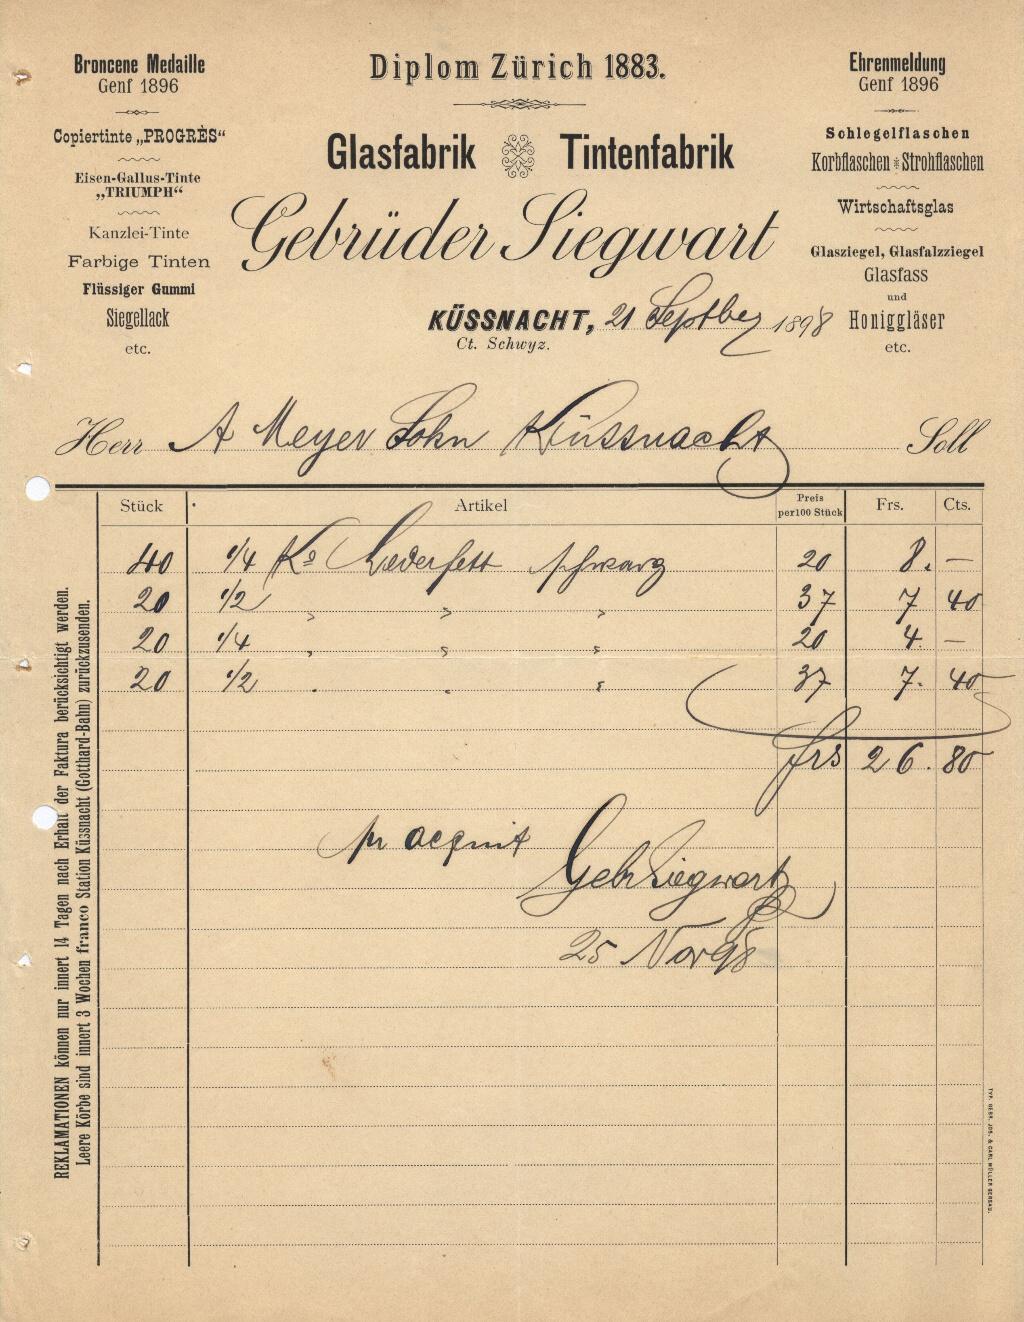 Broncene Medaille
Genf 1896
Copiertinte „PROGRÈS“
Eisen-Gallus-Tinte
„TRIUMPH“
Kanzlei-Tinte
Farbige Tinten
Flüssiger Gummi
Siegellack
etc.
Diplom Zürich 1883.
Glasfabrik Tintenfabrik
Gebrüder Siegwart
KÜSSNACHT, 21 Septber 1898
Ct. Schwyz.
Ehrenmeldung
Genf 1896
Schlegelflaschen
Korbflaschen * Strohflaschen
Wirtschaftsglas
Glasziegel, Glasfalzziegel
Glasfass
und
Honiggläser
etc.
Herr A Meyer Sohn Küssnacht Soll
Stück Artikel Preis per 100 Stück Frs. Cts.
40 1/4 Ko Lederfett schwarz 20 8. —
20 1/2 " " " 37 7 40
20 1/4 " " " 20 4. —
20 1/2 " " " 37 7. 40
frs 26. 80
pr acquit
Gebr Siegwart
25 Nov 98
REKLAMATIONEN können nur innert 14 Tagen nach Erhalt der Faktura berücksichtigt werden.
Leere Körbe sind innert 3 Wochen franco Station Küssnacht (Gotthard-Bahn) zurückzusenden.
TYP. GEBR. JOS. & CARL MÜLLER GERSAU.